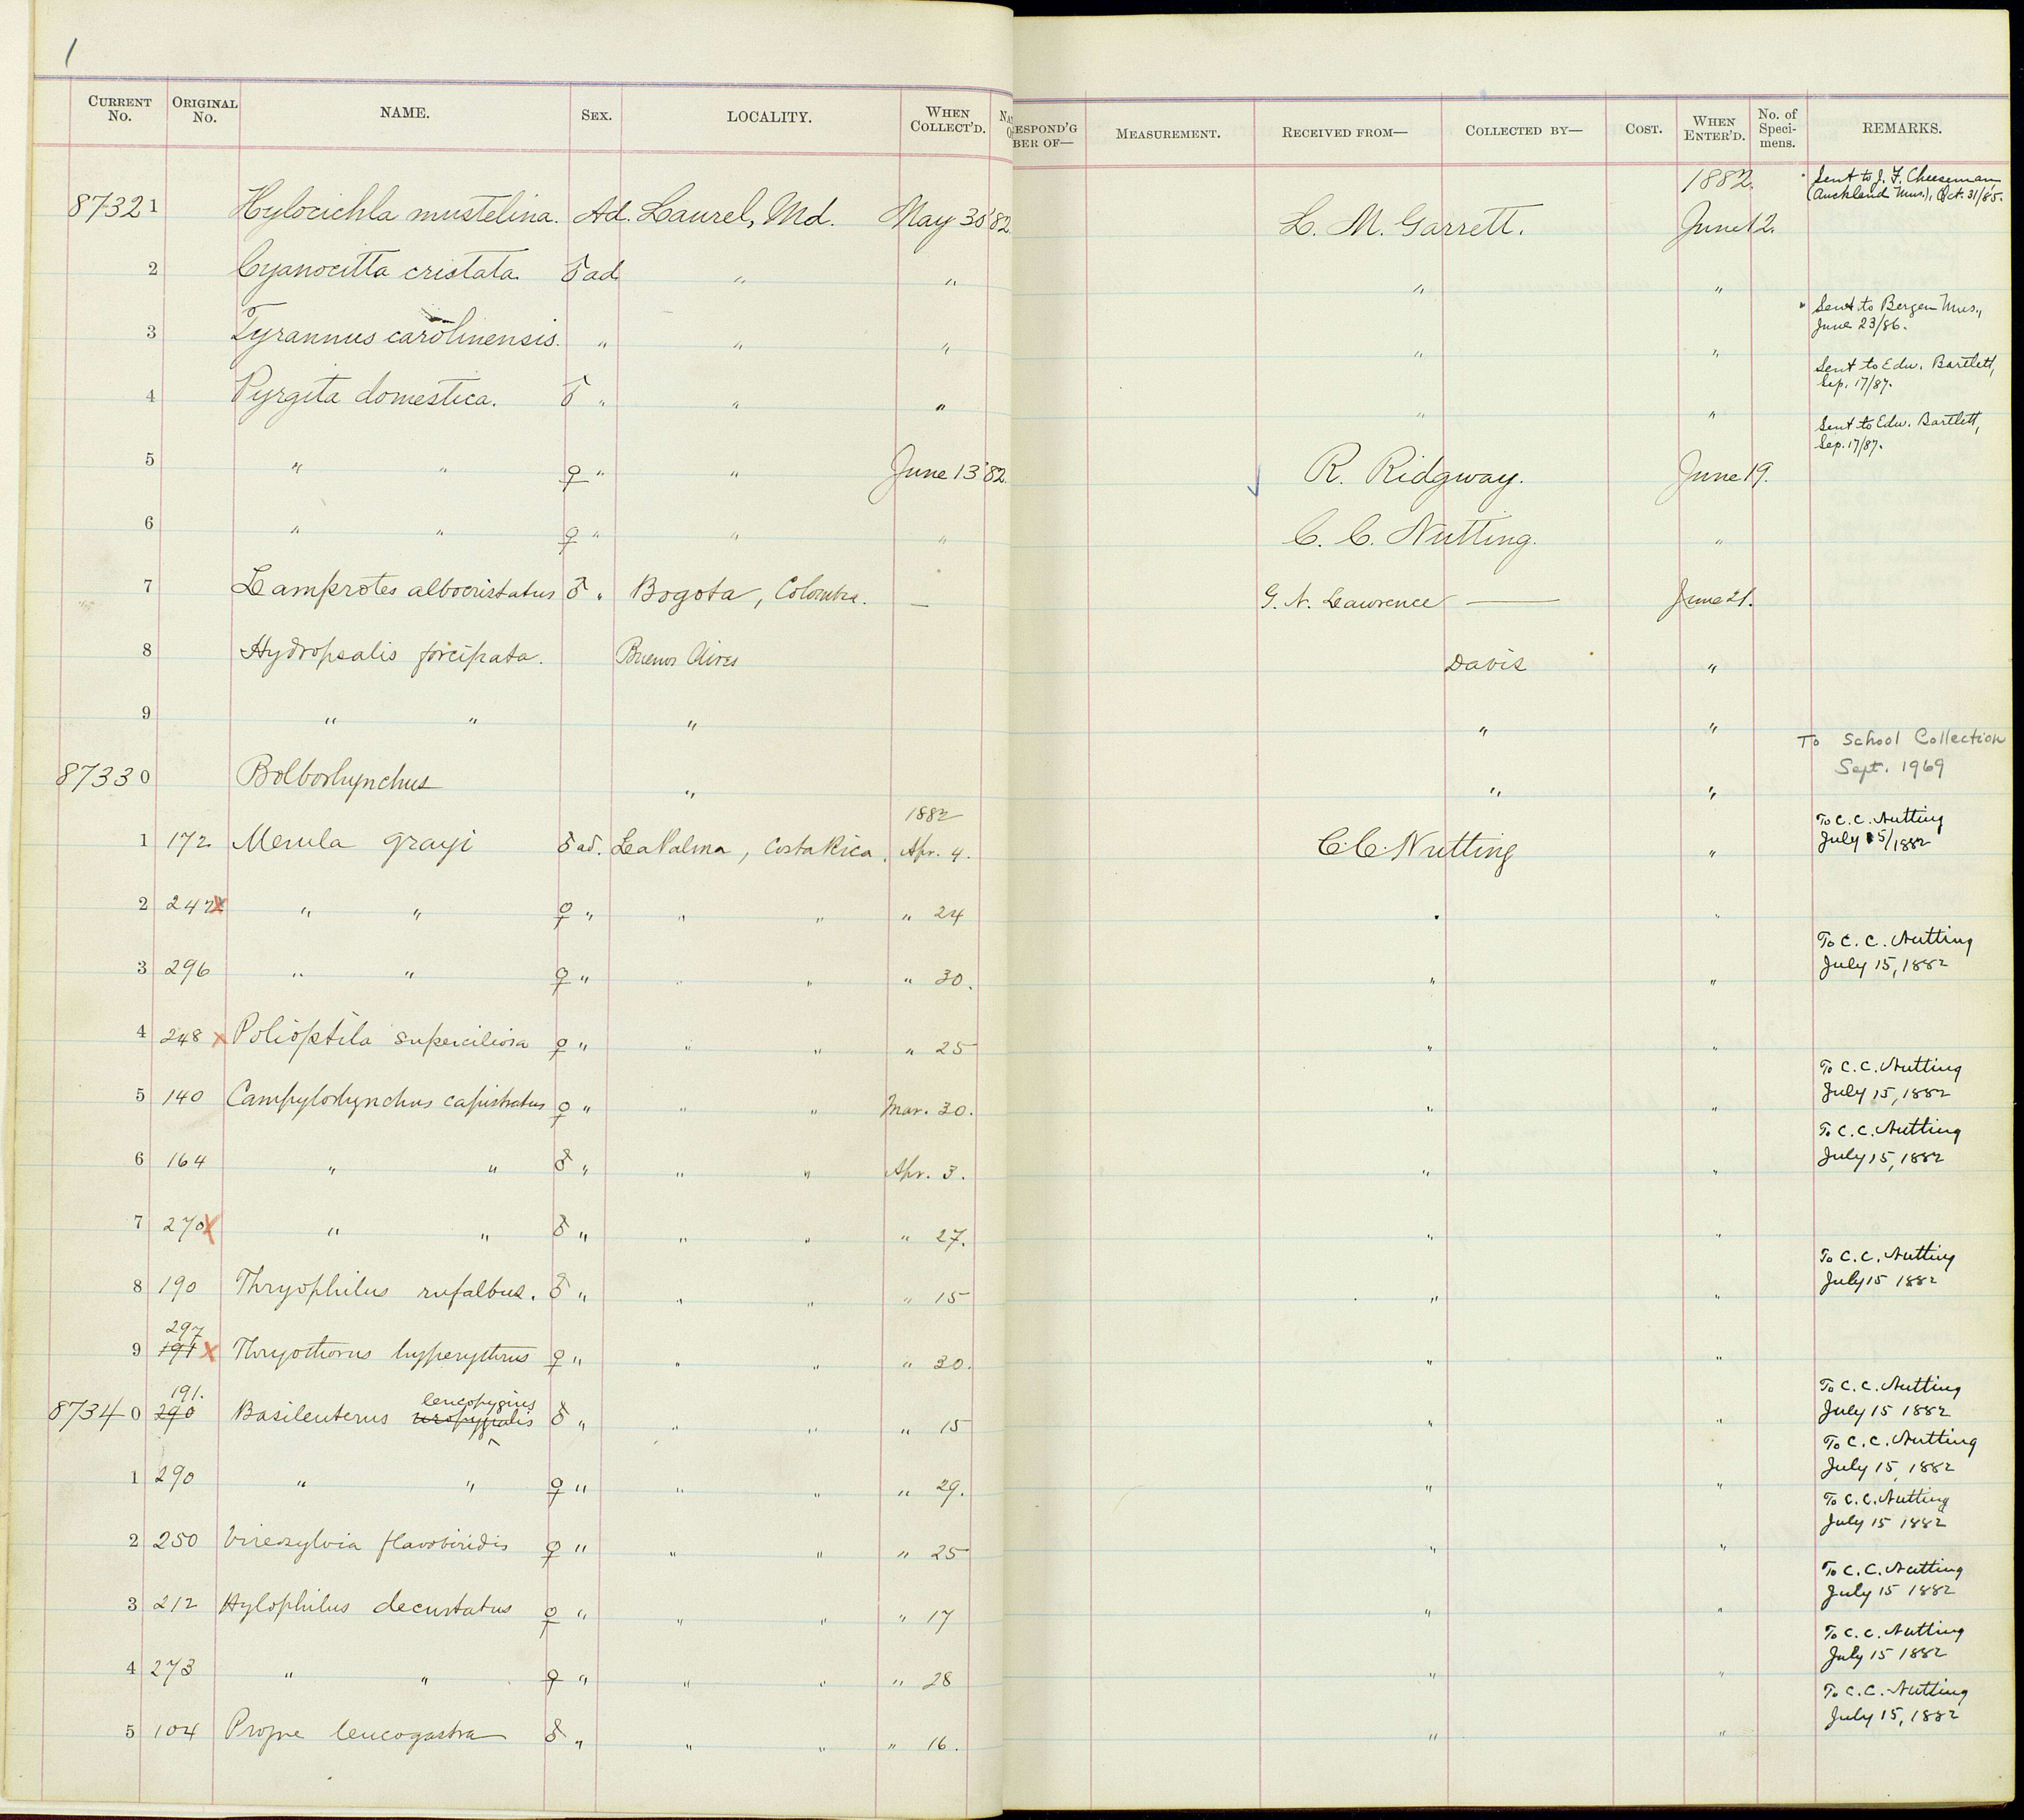 1
CURRENT No. ORIGINAL No. NAME. SEX. LOCALITY. WHEN COLLECT'D. ESPOND'G BER OF— MEASUREMENT. RECEIVED FROM— COLLECTED BY— COST. WHEN ENTER'D. No. of Speci-mens. REMARKS.
1882. Sent to J. F. Cheeseman
(Auckland Mus.), Oct. 31/85.
87321 Hylocichla mustelina. Ad. Laurel, Md. May 30 '82 L. M. Garrett. June 12.
2 Cyanocitta cristata ♂ ad. " " " "
Sent to Bergen Mus.,
June 23/86.
3 Tyrannus carolinensis. " " " " "
Sent to Edw. Bartlett,
Sep. 17/87.
4 Pyrgita domestica. ♂ " " " " "
Sent to Edw. Bartlett,
Sep. 17/87.
5 " " ♀ " " June 13 '82 R. Ridgway. June 19.
6 " " ♀ " " " C. C. Nutting. "
7 Lamprotes albocristatus ♂ " Bogota, Colombia. — G. N. Lawrence — June 21.
8 Hydropsalis forcipata. Buenos Aires Davis "
9 " " " " "
To School Collection
Sept. 1969
87330 Bolborhynchus " " "
1882
To C. C. Nutting
July 15/1882
1 172 Merula grayi ♂ ad. La Palma, Costa Rica. Apr. 4. C. C. Nutting "
2 247 x " " ♀ " " " " 24 " "
To C. C. Nutting
July 15, 1882
3 296 " " ♀ " " " " 30. " "
4 248 x Polioptila superciliosa ♀ " " " " 25 " "
To C. C. Nutting
July 15, 1882
5 140 Campylorhynchus capistratus ♀ " " " Mar. 30. " "
To C. C. Nutting
July 15, 1882
6 164 " " ♂ " " " Apr. 3. " "
7 270 x " " ♂ " " " " 27. " "
To C. C. Nutting
July 15 1882
8 190 Thryophilus rufalbus. ♂ " " " " 15 " "
297
9 191 x Thryothorus hyperythrus ♀ " " " " 30. " "
191. leucopygius
To C. C. Nutting
July 15 1882
87340 290 Basileuterus uropygialis ♂ " " " " 15 " "
To C. C. Nutting
July 15, 1882
1 290 " " ♀ " " " " 29. " "
To C. C. Nutting
July 15 1882
2 250 Vireosylvia flavoviridis ♀ " " " " 25 " "
To C. C. Nutting
July 15 1882
3 212 Hylophilus decurtatus ♀ " " " " 17 " "
To C. C. Nutting
July 15 1882
4 273 " " ♀ " " " " 28 " "
To C. C. Nutting
July 15, 1882
5 104 Progne leucogastra ♂ " " " " 16. " "